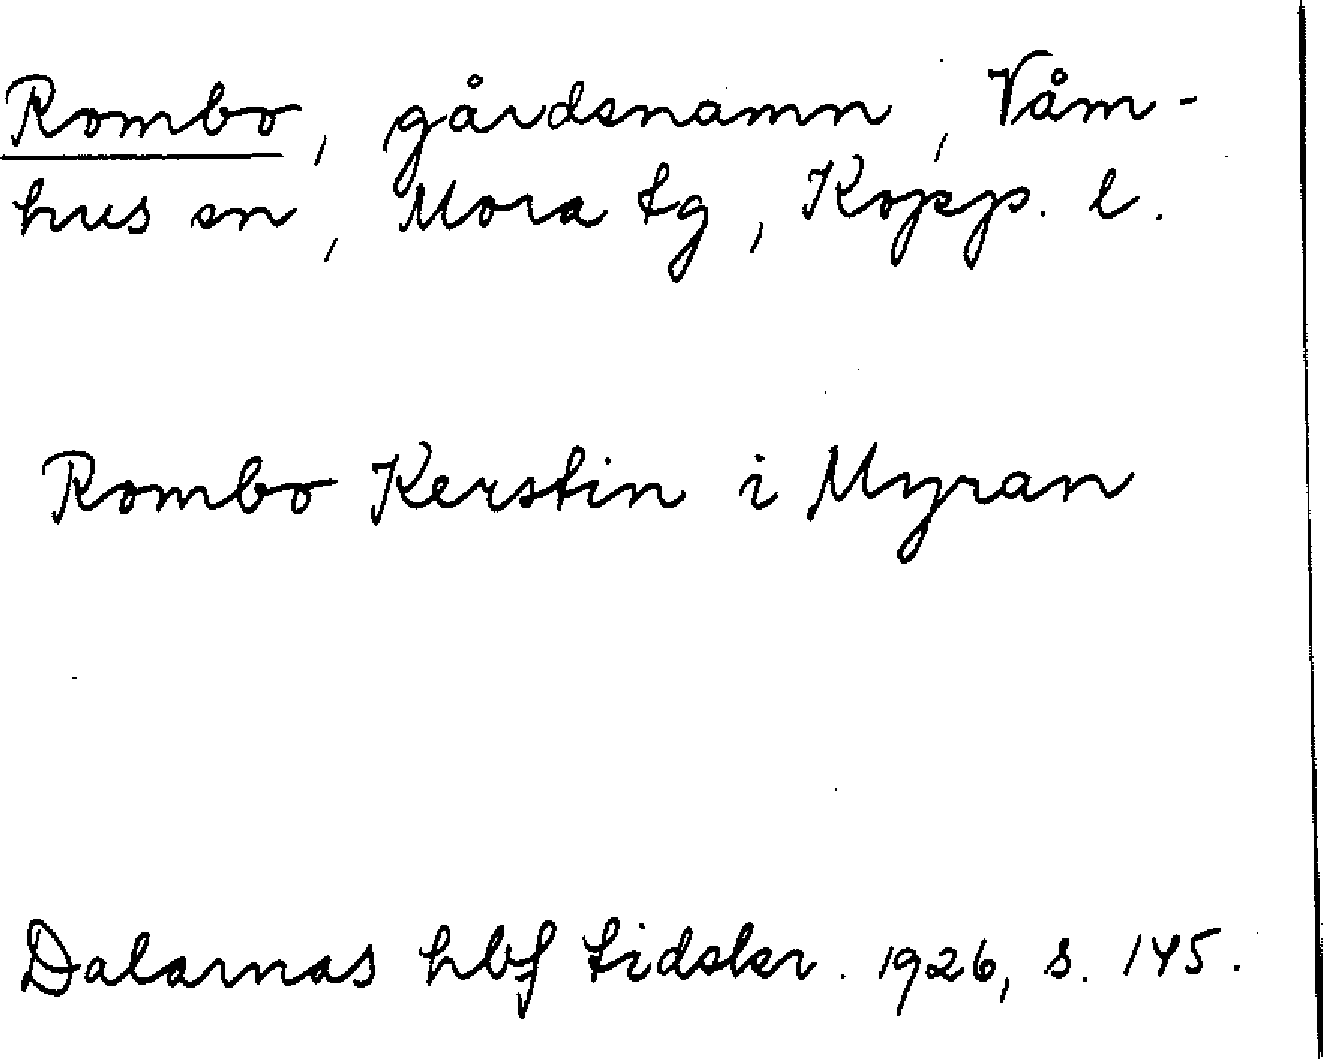 Rombo, gårdsnamn, Våm-
hus sn, Mora tg, Kopp. l.
Rombo Kerstin i Myran
Dalarnas hbf tidskr. 1926, s. 145.